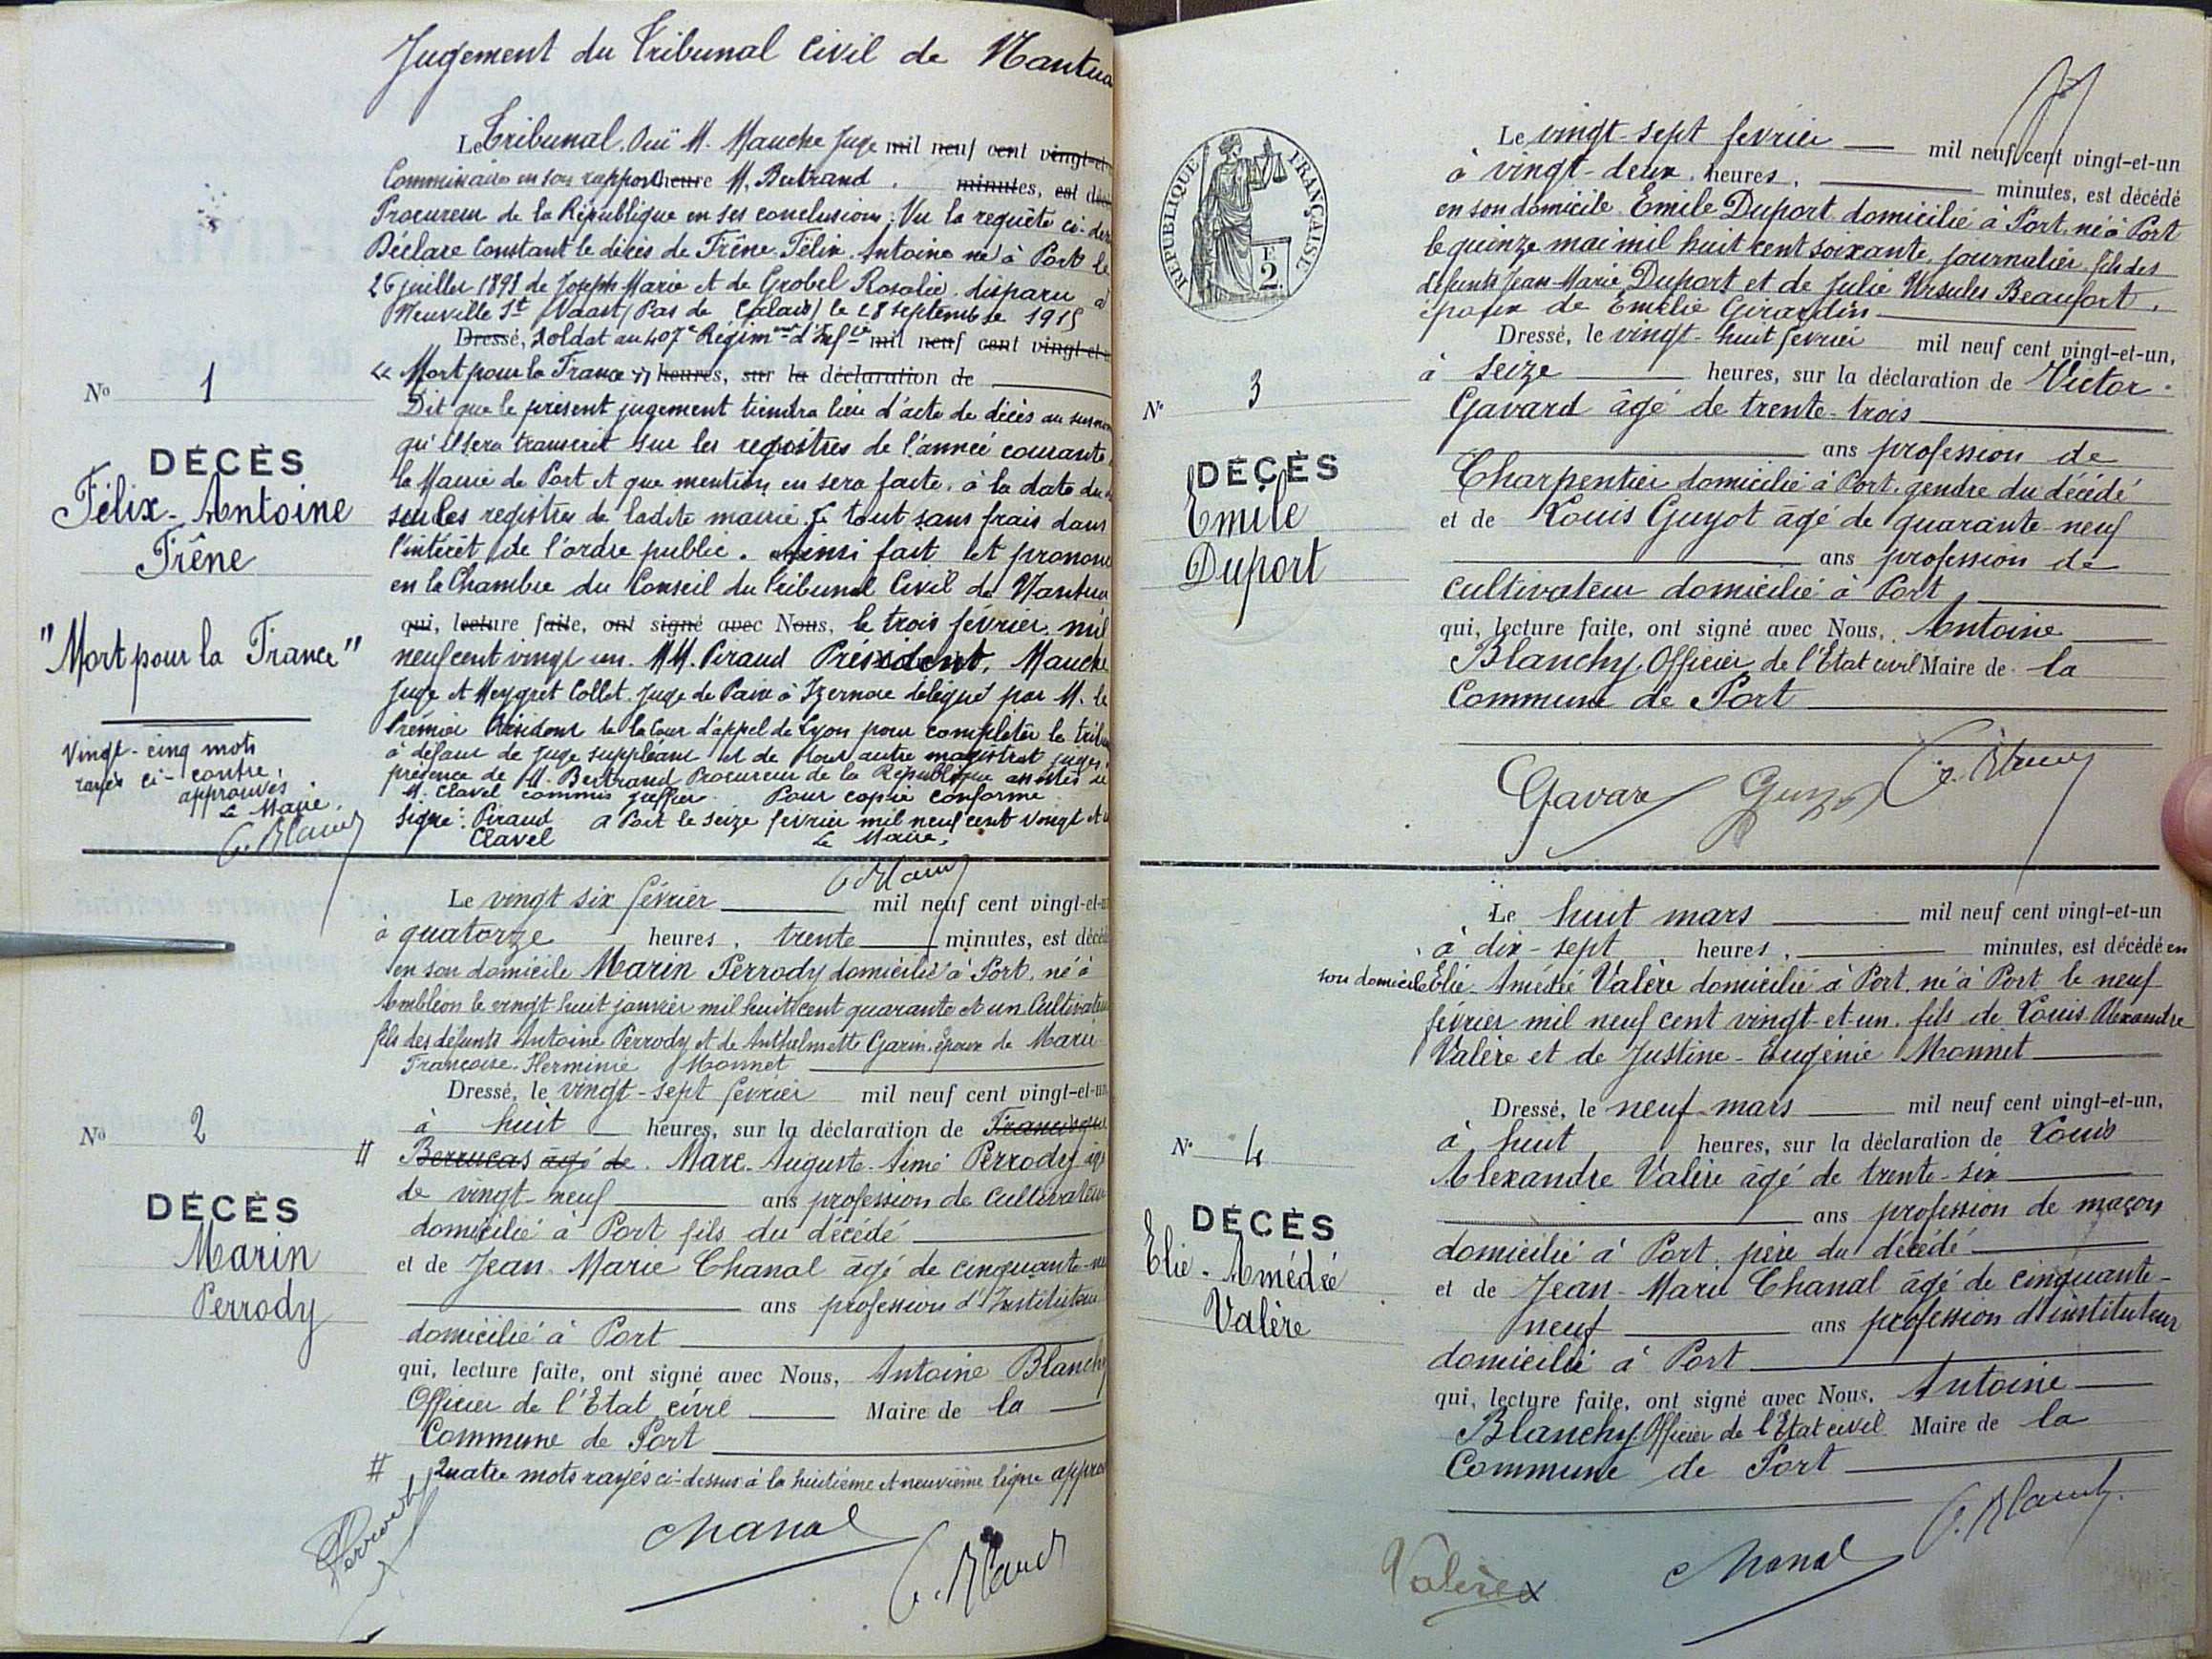 Jugement du Tribunal Civil de Nantua
Le Tribunal. Ouï M. Mauche Juge mil neuf cent vingt-et-
Commissaire en son rapport heure M. Bertrand. minutes, est décé
Procureur de la République en ses conclusions; Vu la requête ci-des
Déclare constant le décès de Frêne Félix Antoine né à Port le
26 juillet 1893 de Joseph Marie et de Grobel Rosalie, disparu à
Neuville St Vaast (Pas de Calais) le 28 septembre 1915
Dressé, soldat au 407e Régiment d'Infie mil neuf cent vingt-et-
« Mort pour la France » heures, sur la déclaration de
Dit que le présent jugement tiendra lieu d'acte de décès au susnom
qu'il sera transcrit sur les registres de l'année courante
la Mairie de Port et que mention en sera faite, à la date du
sur les registres de ladite mairie. Le tout sans frais dans
l'intérêt de l'ordre public. Ainsi fait et prononc
en la Chambre du Conseil du Tribunal Civil de Nantua
qui, lecture faite, ont signé avec Nous, le trois février mil
neuf cent vingt un. MM. Piraud Président, Mauche
Juge et Meygret Collet. Juge de Paix à Izernore délégué par M. le
Premier Président de la Cour d'appel de Lyon pour compléter le trib
à défaut de Juge suppléant et de tout autre magistrat
présence de M. Bertrand Procureur de la République assistés de
M. Clavel commis greffier Pour copie conforme
Signé: Piraud A Port le seize février mil neuf cent vingt et
Clavel Le Maire,
No 1
DÉCÈS
Félix-Antoine
Frêne
"Mort pour la France"
Vingt-cinq mots
rayés ci-contre,
approuvés
Le Maire.
Le vingt six février mil neuf cent vingt-et-u
à quatorze heures, trente minutes, est décéd
en son domicile Marin Perrody domicilié à Port, né à
Ambléon le vingt-huit janvier mil huit cent quarante et un Cultivateu
fils des défunts Antoine Perrody et de Anthelmette Garin, époux de Marie
Françoise Herminie Monnet
Dressé, le vingt-sept février mil neuf cent vingt-et-un
à huit heures, sur la déclaration de Francisque
# Berrucas âgé de. Marc-Auguste-Aimé Perrody âgé
de vingt-neuf ans profession de Cultivateu
domicilié à Port fils du décédé
et de Jean-Marie Chanal âgé de cinquante-ne
ans profession d'Instituteu
domicilié à Port
qui, lecture faite, ont signé avec Nous, Antoine Blanchy
Officier de l'Etat civil Maire de la
Commune de Port
# Quatre mots rayés ci-dessus à la huitième et neuvième ligne appro
No 2
DÉCÈS
Marin
Perrody
Perrody Chanal
RÉPUBLIQUE FRANÇAISE
F.
2.
Le vingt-sept février mil neuf cent vingt-et-un
à vingt-deux heures, minutes, est décédé
en son domicile Emile Duport domicilié à Port, né à Port
le quinze mai mil huit cent soixante, journalier, fils des
défunts Jean-Marie Duport et de Julie Ursules Beaufort,
époux de Emélie Girardin
Dressé, le vingt-huit février mil neuf cent vingt-et-un,
à seize heures, sur la déclaration de Victor
Gavard âgé de trente-trois
ans profession de
Charpentier domicilié à Port, gendre du décédé
et de Louis Guyot âgé de quarante-neuf
ans profession de
cultivateur domicilié à Port
qui, lecture faite, ont signé avec Nous, Antoine
Blanchy, Officier de l'Etat civil Maire de la
Commune de Port
N° 3
DÉCÈS
Emile
Duport
Gavard
Le huit mars mil neuf cent vingt-et-un
à dix-sept heures, minutes, est décédé en
son domicile Elie-Amédée Valère domicilié à Port, né à Port le neuf
février mil neuf cent vingt-et-un, fils de Louis Alexandre
Valère et de Justine-Eugénie Monnet
Dressé, le neuf mars mil neuf cent vingt-et-un,
à huit heures, sur la déclaration de Louis
Alexandre Valère âgé de trente-six
ans profession de maçon
domicilié à Port, père du décédé
et de Jean-Marie Chanal âgé de cinquante-
neuf ans profession d'instituteur
domicilié à Port
qui, lecture faite, ont signé avec Nous, Antoine
Blanchy, Officier de l'Etat civil Maire de la
Commune de Port
N° 4
DÉCÈS
Elie-Amédée
Valère
Valère Chanal